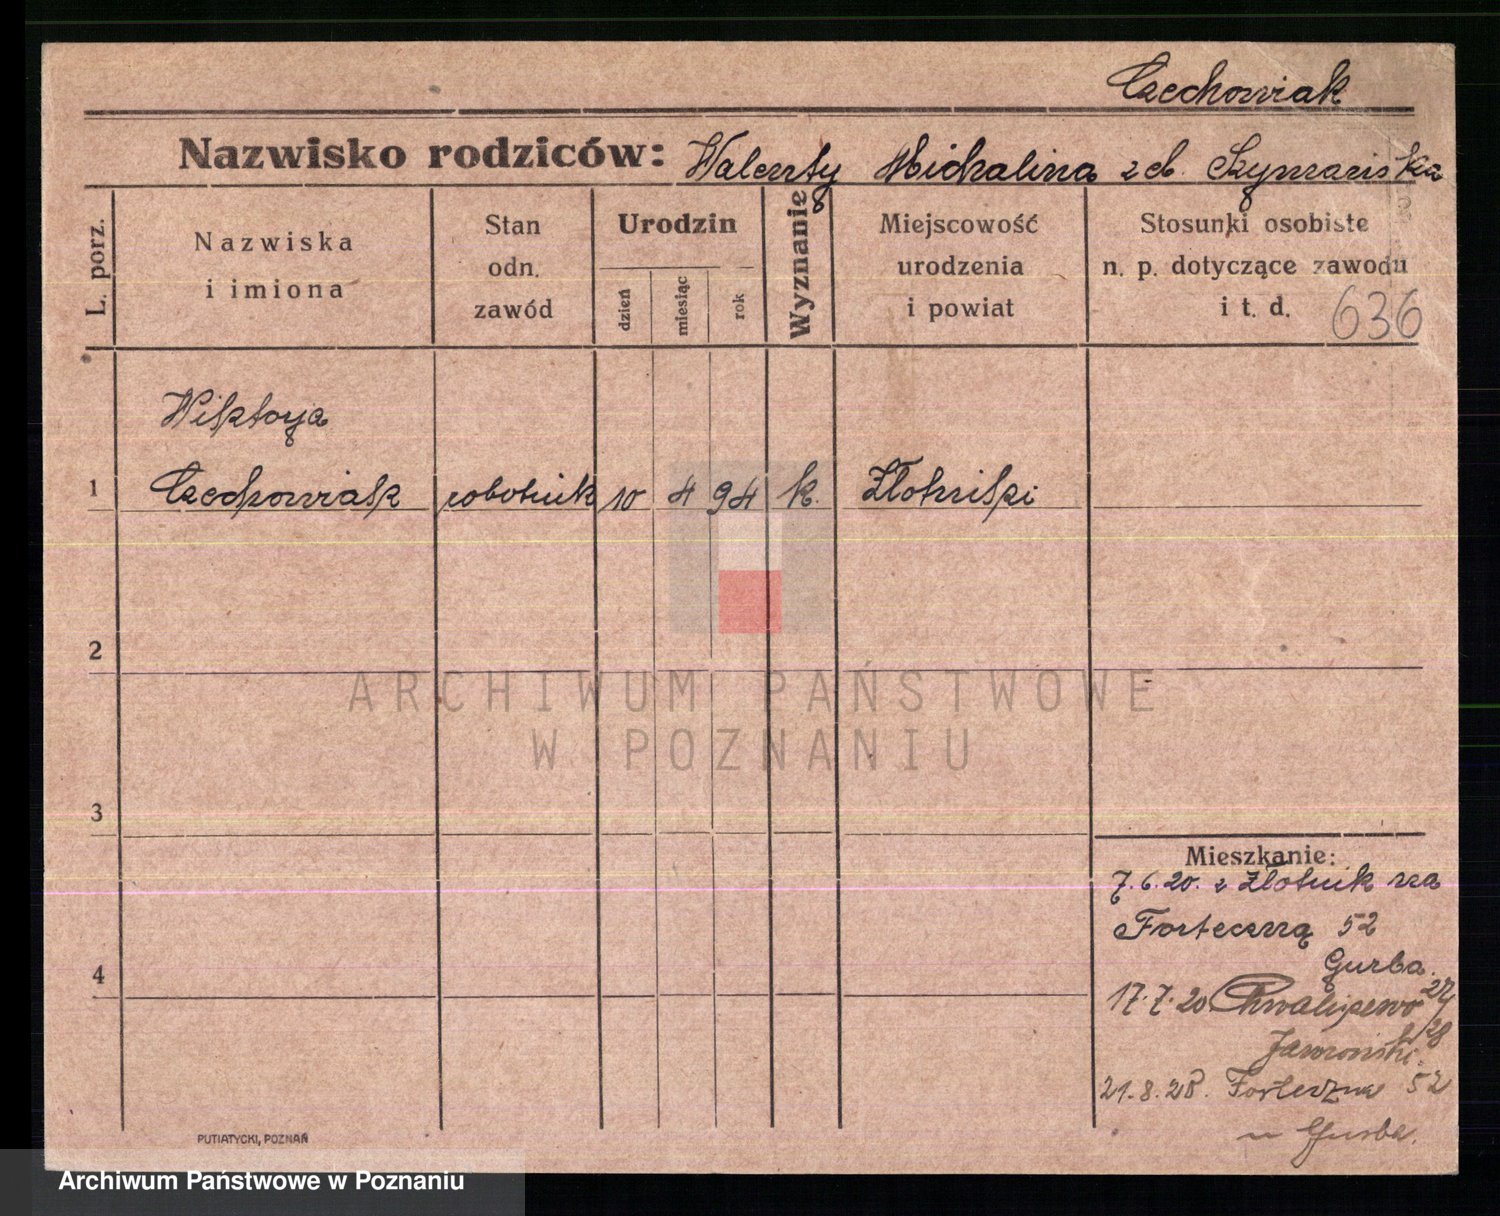 Czechowiak
Nazwisko rodziców: Walenty Michalina z d. Szymańska
L. porz.
Nazwiska
i imiona
Stan
odn.
zawód
Urodzin
dzień
miesiąc
rok
Wyznanie
Miejscowość
urodzenia
i powiat
Stosunki osobiste
n. p. dotyczące zawodu
i t. d.
636
Wiktorja
1 Czechowiak robotnik 10 4 94 k. Złotniki
2
ARCHIWUM PAŃSTWOWE
W POZNANIU
3
Mieszkanie:
7.6.20. z Złotnik na
Forteczną 52
Gurba.
4
17.7.20 Chwaliszewo 27/28
Jaworski.
21.8.28. Forteczna 52
u Gurba.
PUTIATYCKI, POZNAŃ
Archiwum Państwowe w Poznaniu